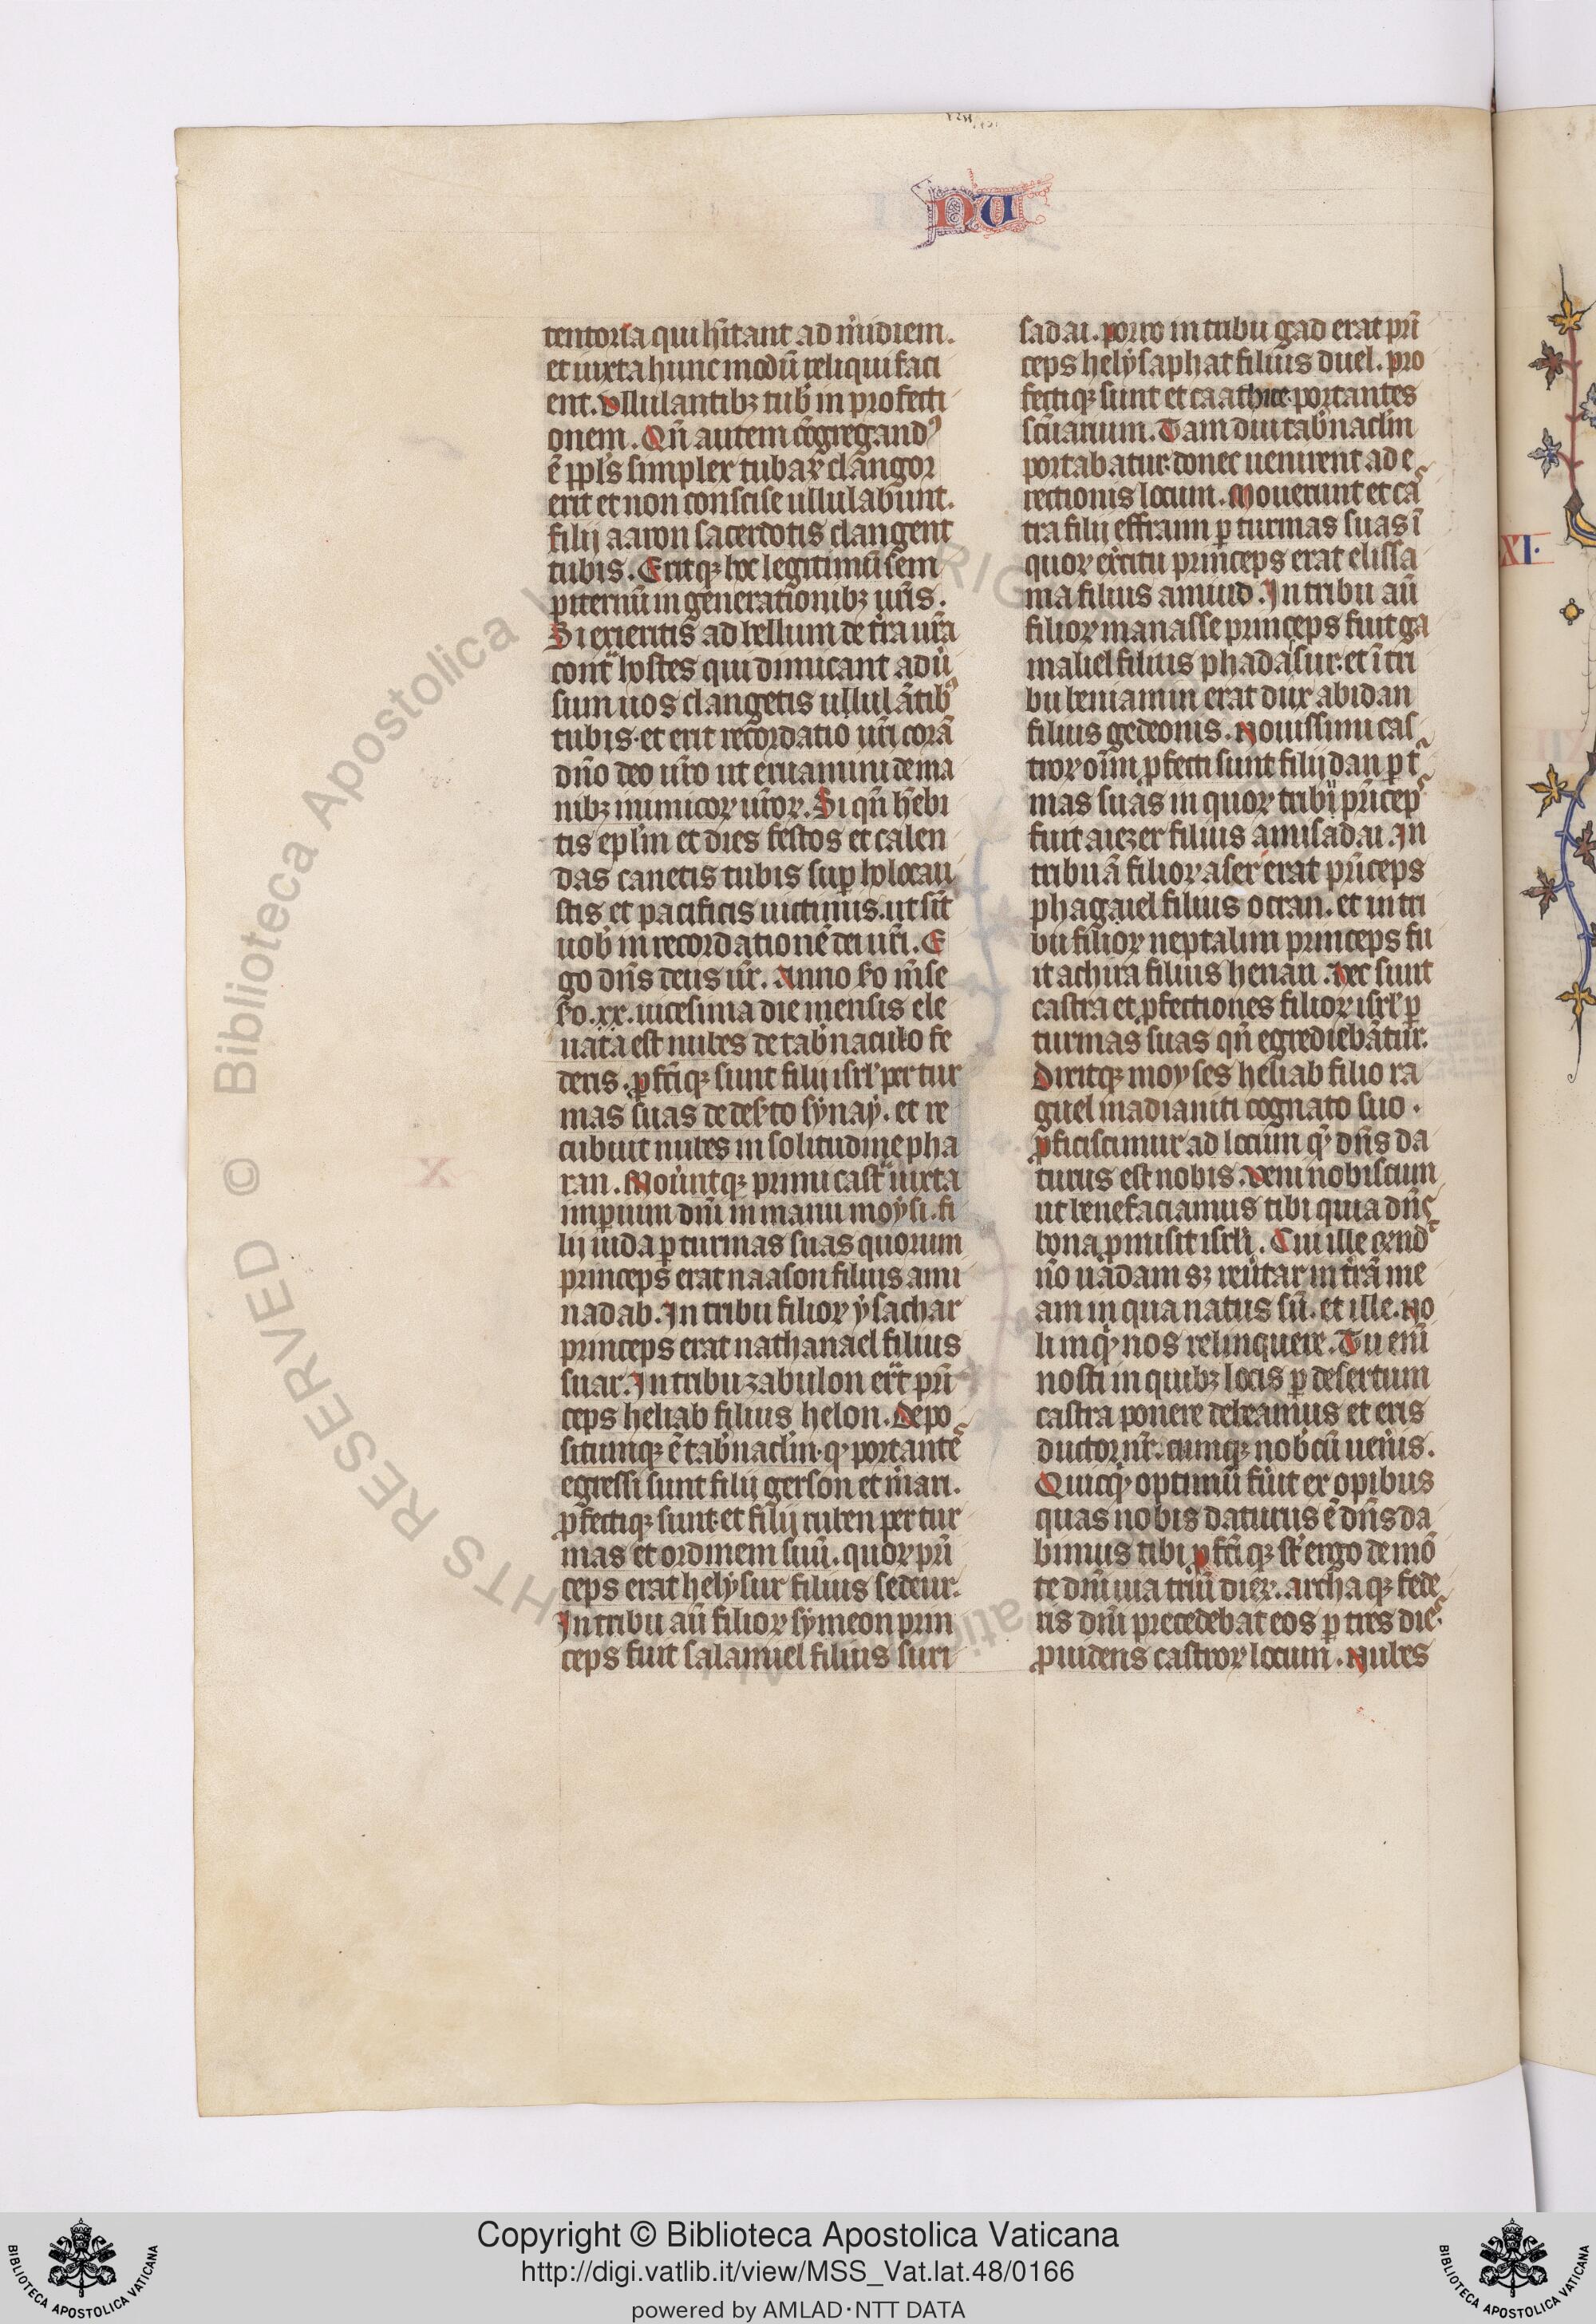 NU
tentoria qui hītant ad m̄idiem.
et iuxta hunc modū reliqui faci
ent. Vllulantibꝫ tub̄ in profecti
onem. Qn̄ autem cōgregandꝰ
ē ppl̄s simplex tubaꝝ clangor
erit et non concise ullulabunt.
filij aaron sacerdotis clangent
tubis. Eritqꝫ hoc legitimū sem
piternū in generationibꝫ ur̄is.
Si exieritis ad bellum de t̄ra ur̄a
contª hostes qui dimicant adū
sum uos clangetis ullulātibꝰ
tubis. et erit recordatio ur̄i corā
dn̄o deo ur̄o ut eruamini de ma
nibꝫ inimicoꝝ ur̄oꝝ. Si qn̄ hēbi
tis epl̄m et dies festos et calen
das canetis tubis suꝑ holocau
stis et pacificis uictimis. ut sīt
uob̄ in recordationē dei ur̄i. E
go dn̄s deus ur̄. Anno s̄o m̄se
s̄o. xx. uicesima die mensis ele
uata est nubes de tab̄naculo fe
deris. ꝓfc̄iqꝫ sunt filij isrl̄ per tur
mas suas de des̄to synaÿ. et re
cubuit nubes in solitudine pha
ran. Mou̇ntqꝫ primi castª iuxta
imꝑium dn̄i in manu moysi. fi
lij iuda ꝑ turmas suas quorum
princeps erat naason filius ami
nadab. In tribu filioꝝ ẏsachar
princeps erat nathanael filius
suar. In tribu zabulon erªt prī
ceps heliab filius helon. Depo
situmqꝫ ē tab̄nacl̄m. qͩ portante᷒
egressi sunt filij gerson et m̄ari.
ꝓfectiqꝫ sunt. et filij ruben per tur
mas et ordinem suū. quoꝝ prī
ceps erat helysur filius sedeur.
In tribu aū filioꝝ sẏmeon prin
ceps fuit salamiel filius suri
sadai. porro in tribu gad erat prī
ceps helẏsaphat filius duel. pro
fectiqꝫ sunt et caathite portantes
sc̄uarium. Tam diu tab̄nacl̄m
portabatur. donec uenirent ad e
rectionis locum. Mouerunt et ca᷒
tra filij effraim ꝑ turmas suas ī
quoꝝ ex̄citu princeps erat elissa
ma filius amiud. In tribu aū
filioꝝ manasse princeps fuit ga
maliel filius phadasur. et ī tri
bu beniamin erat dux abidan
filius gedeonis. Nouissimi cas
troꝝ oīm ꝓfecti sunt filij dan ꝑ t᷒
mas suas in quoꝝ tribu prīcep᷒
fuit aiezer filius amisadai. In
tribu ā filioꝝ aser erat prīceps
phagaiel filius ocran. et in tri
bu filioꝝ neptalim princeps fu
it achira filius henan. Hec sunt
castra et ꝓfectiones filioꝝ isrl̄ ꝑ
turmas suas qn̄ egrediebātur.
Dixitqꝫ moyses heliab filio ra
guel madianiti cognato suo.
ꝓficiscimur ad locum qͩ dn̄s da
turus est nobis. Veni nobiscum
ut benefaciamus tibi quia dn̄᷒
bona ꝓmisit isrl̄i. Cui ille r̄nd᷒
nō uadam sꝫ reu̇tar in t̄rā me
am in qua natus sū. et ille. No
li inqͩ nos relinquere. Tu enī
nosti in quibꝫ locis ꝑ desertum
castra ponere debeamus et eris
ductor nr̄. cumqꝫ nob̄cū uen̄is.
Quicqͩ optimū fūit ex opibus
quas nobis daturus ē dn̄s da
bimus tibi ꝓfc̄iqꝫ st̄ ergo de mō
te dn̄i uia triū dieꝝ. archaqꝫ fede
ris dn̄i precedebat eos ꝑ tres die᷒
ꝓuidens castroꝝ locum. Nubes
XI.
Copyright © Biblioteca Apostolica Vaticana
http://digi.vatlib.it/view/MSS_Vat.lat.48/0166
powered by AMLAD·NTT DATA
BIBLIOTECA APOSTOLICA VATICANA
BIBLIOTECA APOSTOLICA VATICANA